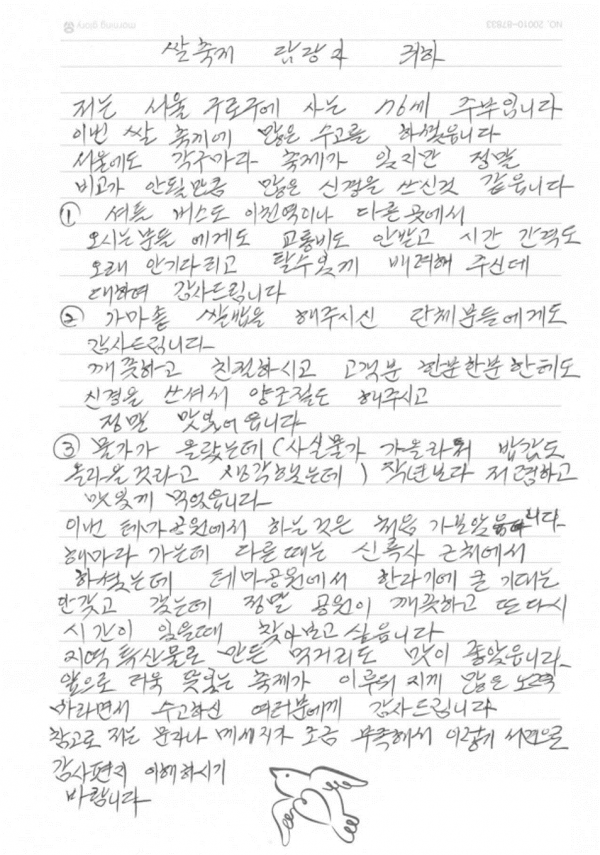 NO. 20010-87833
morning glory
쌀축제 담당자 귀하
저는 서울 구로구에 사는 76세 주부입니다
이번 쌀 축제에 많은 수고를 하셨읍니다
서울에도 각구마다 축제가 있지만 정말
비교가 안될만큼 많은 신경을 쓰신것 같읍니다
① 셔틀 버스도 이천역이나 다른곳에서
오시는분들 에게도 교통비도 안받고 시간 간격도
오래 안기다리고 탈수있게 배려해 주신데
대하여 감사드립니다
② 가마솥 쌀밥을 해주시신 단체분들에게도
감사드립니다
깨끗하고 친절하시고 고객분 한분한분한테도
신경을 쓰셔서 양조절도 해주시고
정말 맛있어읍니다
③ 물가가 올랐는데 (사실물가 가올라 밥값도
올라올것라고 생각했는데) 작년보다 저렴하고
맛있게 먹었읍니다
이번 테마공원에서 하는것은 처음 가보았읍니다
해마라 가는데 다른때는 신륵사 근처에서
하셨는데 테마공원에서 한다기에 큰 기대는
안갖고 갔는데 정말 공원이 깨끗하고 또다시
시간이 있을때 찾아보고싶읍니다
지역 특산물로 만든 먹거리도 맛이 좋았읍니다
앞으로 더욱 뜻있는 축제가 이루워지게 많은 노력
바라면서 수고하신 여러분에게 감사드립니다
참고로 저는 문자나 메세지가 조금 부족해서 이렇게 서면으로
감사편지 이해하시기
바랍니다